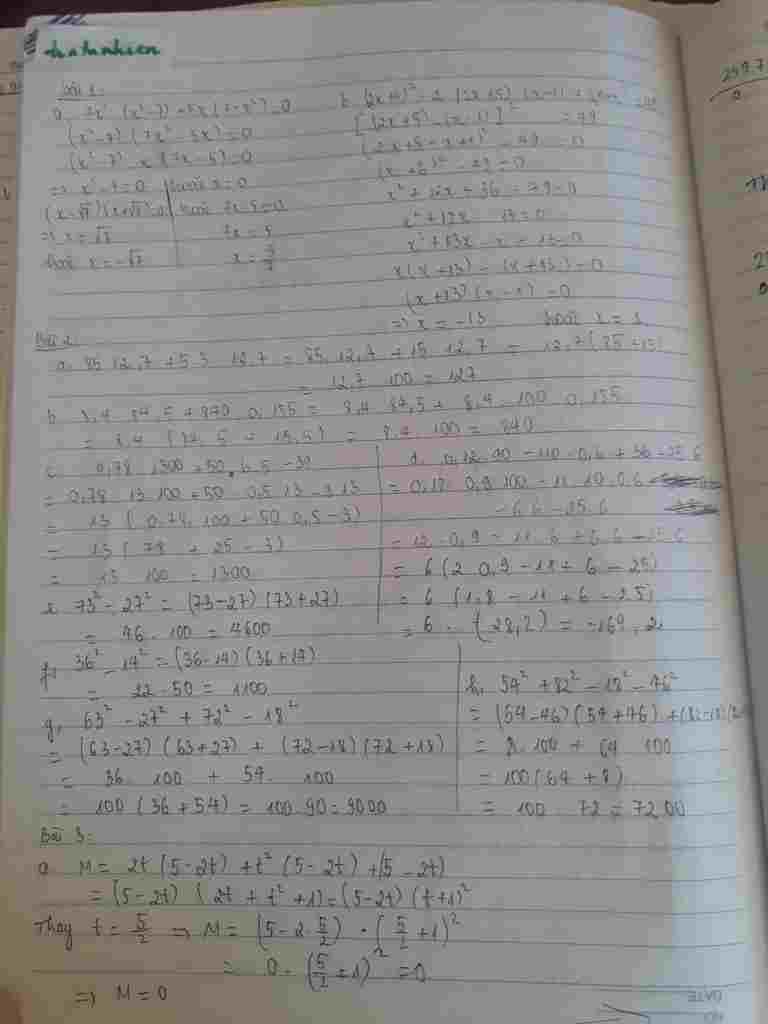 hanahnhien
Bài 1:
(x² - 7)(2x² - 5x) = 0
[(2x+5) - (x-1)]² = 49
(x² - 7) x (2x - 5) = 0
=> x² - 7 = 0 hoặc x = 0
(x - √7)(x + √7) = 0 hoặc 2x - 5 = 0
=> x = √7 2x = 5
hoặc x = -√7 x = 5/2
x² + 12x + 36 - 49 = 0
x² + 12x - 13 = 0
x² + 13x - x - 13 = 0
x(x + 13) - (x + 13) = 0
=> x = -13 hoặc x = 1
Bài 2:
a. 85 . 12,7 + 5 . 3 . 12,7 = 85 . 12,7 + 15 . 12,7 = 12,7 (85 + 15)
= 12,7 . 100 = 127
b. 8,4 . 84,5 + 840 . 0,155 = 8,4 . 84,5 + 8,4 . 100 . 0,155
= 8,4 (84,5 + 15,5) = 8,4 . 100 = 840
c. 0,78 . 1300 + 50 . 6,5 - 39
= 0,78 . 13 . 100 + 50 . 0,5 . 13 - 3 . 13
= 13 (0,78 . 100 + 50 . 0,5 - 3)
= 13 (78 + 25 - 3)
= 13 . 100 = 1300
d. 0,12 . 90 - 110 . 0,6 + 36 - 25 . 6
= 0,12 . 0,9 . 100 - 11 . 10 . 0,6
+ 6 . 6 - 25 . 6
= 12 . 0,9 - 11 . 6 + 6 . 6 - 25 . 6
= 6 (2 . 0,9 - 11 + 6 - 25)
= 6 (1,8 - 11 + 6 - 25)
= 6 . (-28,2) = -169,2
e. 73² - 27² = (73 - 27)(73 + 27)
= 46 . 100 = 4600
f, 36² - 14² = (36 - 14)(36 + 14)
= 22 . 50 = 1100
g, 63² - 27² + 72² - 18²
= (63 - 27)(63 + 27) + (72 - 18)(72 + 18)
= 36 . 100 + 54 . 100
= 100 (36 + 54) = 100 . 90 = 9000
h, 54² + 82² - 18² - 46²
= (54 - 46)(54 + 46) + (82 - 18)
= 8 . 100 + 64 . 100
= 100 (64 + 8)
= 100 . 72 = 7200
Bài 3:
a. M = 2t (5 - 2t) + t² (5 - 2t) + (5 - 2t)
= (5 - 2t) (2t + t² + 1) = (5 - 2t) (t + 1)²
Thay t = 5/2 => M = (5 - 2 . 5/2) . (5/2 + 1)²
= 0 . (5/2 + 1)² = 0
=> M = 0
DATE
NO
259,7